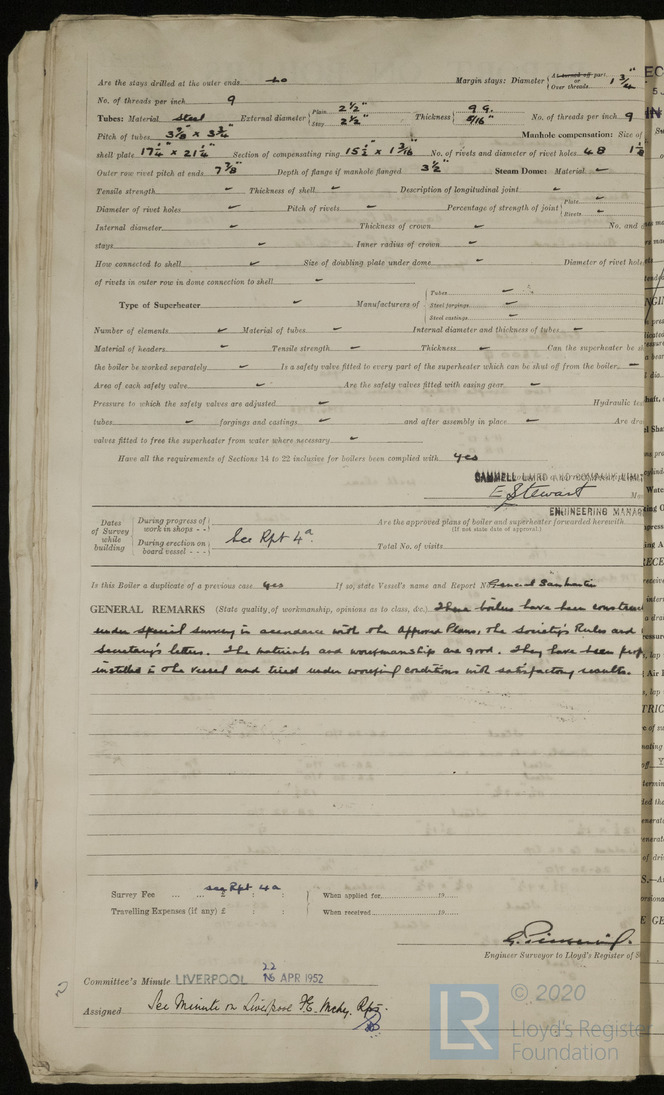 Are the stays drilled at the outer ends no Margin stays: Diameter { At turned off part, or Over threads 1 3/4"
No. of threads per inch 9
Tubes: Material Steel External diameter { Plain 2 1/2" Stay 2 1/2" Thickness { 9 G. 5/16" No. of threads per inch 9
Pitch of tubes 3 5/8" x 3 3/4" Manhole compensation: Size of
shell plate 17 1/4" x 21 1/4" Section of compensating ring 15 1/2" x 1 3/16" No. of rivets and diameter of rivet holes 48
Outer row rivet pitch at ends 7 7/8" Depth of flange if manhole flanged 3 1/2" Steam Dome: Material
Tensile strength Thickness of shell Description of longitudinal joint
Diameter of rivet holes Pitch of rivets Percentage of strength of joint { Plate Rivets
Internal diameter Thickness of crown No. and
stays Inner radius of crown
How connected to shell Size of doubling plate under dome Diameter of rivet hole
of rivets in outer row in dome connection to shell
Type of Superheater Manufacturers of { Tubes Steel forgings Steel castings
Number of elements Material of tubes Internal diameter and thickness of tubes
Material of headers Tensile strength Thickness Can the superheater be
the boiler be worked separately Is a safety valve fitted to every part of the superheater which can be shut off from the boiler
Area of each safety valve Are the safety valves fitted with easing gear
Pressure to which the safety valves are adjusted Hydraulic
tubes forgings and castings and after assembly in place Are
valves fitted to free the superheater from water where necessary
Have all the requirements of Sections 14 to 22 inclusive for boilers been complied with yes
CAMMELL LAIRD AND COMPANY LIMIT
E Stewart
ENGINEERING MANAG
Dates of Survey while building { During progress of work in shops - - During erection on board vessel - - - See Rpt 4a. Are the approved plans of boiler and superheater forwarded herewith
(If not state date of approval.)
Total No. of visits
Is this Boiler a duplicate of a previous case yes If so, state Vessel's name and Report No. General San Martin
GENERAL REMARKS (State quality of workmanship, opinions as to class, &c.) These boilers have been
under special survey in accordance with the Approved Plans, the Society's Rules and
Secretary's letters. The materials and workmanship are good. They have been
installed in the vessel and tried under working conditions with satisfactory results.
Survey Fee ... ... £ see Rpt 4a : : When applied for 19
Travelling Expenses (if any) £ : : When received 19
Engineer Surveyor to Lloyd's Register of
Committee's Minute LIVERPOOL 22 APR 1952
Assigned See Minute on Liverpool F.E. Mchy. Rpts.
LR © 2020
Lloyd's Register
Foundation